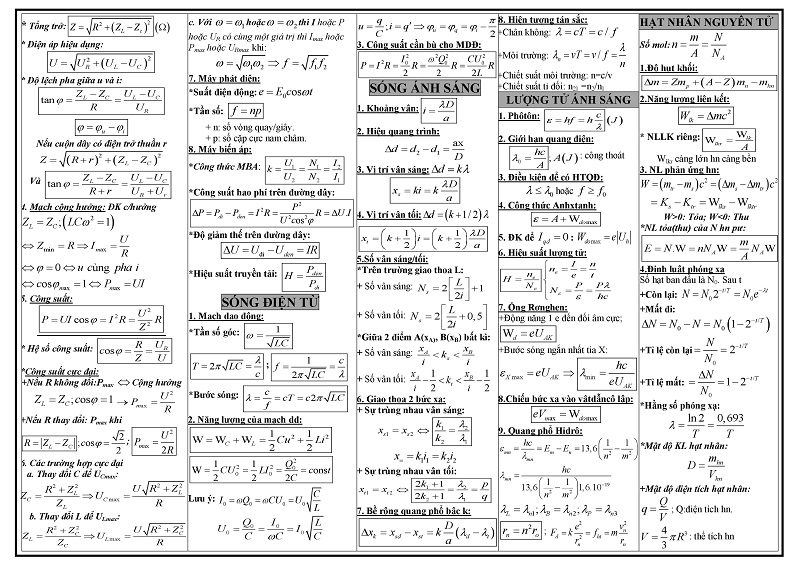 * Tổng trở: Z = √(R² + (Z_L − Z_C)²) (Ω)
* Điện áp hiệu dụng:
U = √(U_R² + (U_L − U_C)²)
* Độ lệch pha giữa u và i:
tan φ = (Z_L − Z_C)/R = (U_L − U_C)/U_R
φ = φ_u − φ_i
Nếu cuộn dây có điện trở thuần r
Z = √((R + r)² + (Z_L − Z_C)²)
Và tan φ = (Z_L − Z_C)/(R + r) = (U_L − U_C)/(U_R + U_r)
4. Mạch cộng hưởng: ĐK c/hưởng
Z_L = Z_C; (LCω² = 1)
⇔ Z_min = R ⇒ I_max = U/R
⇔ φ = 0 ⇔ u cùng pha i
⇔ cos φ_max = 1 ⇔ P_max = UI
5. Công suất:
P = UI cos φ = I²R = (U²/Z²) R
* Hệ số công suất: cos φ = R/Z = U_R/U
*Công suất cực đại:
+Nếu R không đổi: P_max ⇔ Cộng hưởng
Z_L = Z_C; cos φ = 1 → P_max = U²/R
+Nếu R thay đổi: P_max khi
R = |Z_L − Z_C|; cos φ = √2/2; P_max = U²/2R
6. Các trường hợp cực đại
a. Thay đổi C để U_Cmax:
Z_C = (R² + Z_L²)/Z_L ⇒ U_Cmax = U√(R² + Z_L²)/R
b. Thay đổi L để U_Lmax:
Z_L = (R² + Z_C²)/Z_C ⇒ U_Lmax = U√(R² + Z_C²)/R
c. Với ω = ω₁ hoặc ω = ω₂ thì I hoặc P
hoặc U_R có cùng một giá trị thì I_max hoặc
P_max hoặc U_Rmax khi:
ω = √(ω₁ω₂) ⇒ f = √(f₁f₂)
7. Máy phát điện:
*Suất điện động: e = E₀cosωt
*Tần số: f = np
+ n: số vòng quay/giây.
+ p: số cặp cực nam châm.
8. Máy biến áp:
*Công thức MBA: k = U₁/U₂ = N₁/N₂ = I₂/I₁
*Công suất hao phí trên đường dây:
ΔP = P_đi − P_đến = I²R = P²/(U²cos²φ) R = ΔU.I
*Độ giảm thế trên đường dây:
ΔU = U_đi − U_đến = IR
*Hiệu suất truyền tải: H = P_đến/P_đi
SÓNG ĐIỆN TỪ
1. Mạch dao động:
*Tần số góc: ω = 1/√LC
T = 2π√LC = λ/c; f = 1/(2π√LC) = c/λ
*Bước sóng: λ = c/f = cT = c2π√LC
2. Năng lượng của mạch dđ:
W = W_C + W_L = ½Cu² + ½Li²
W = ½CU₀² = ½LI₀² = Q₀²/2C = const
Lưu ý: I₀ = ωQ₀ = ωCU₀ = U₀√(C/L)
U₀ = Q₀/C = I₀/ωC = I₀√(L/C)
u = q/C; i = q' ⇒ φ_u = φ_q = φ_i − π/2
3. Công suất cần bù cho MDĐ:
P = I²R = (I₀²/2)R = (ω²Q₀²/2)R = (CU₀²/2L)R
SÓNG ÁNH SÁNG
1. Khoảng vân: i = λD/a
2. Hiệu quang trình:
Δd = d₂ − d₁ = ax/D
3. Vị trí vân sáng: Δd = kλ
x_s = ki = k λD/a
4. Vị trí vân tối: Δd = (k + 1/2)λ
x_t = (k + ½)i = (k + ½) λD/a
5.Số vân sáng/tối:
*Trên trường giao thoa L:
+ Số vân sáng: N_s = 2[L/2i] + 1
+ Số vân tối: N_t = 2[L/2i + 0,5]
*Giữa 2 điểm A(x_A), B(x_B) bất kì:
+ Số vân sáng: x_A/i < k_s < x_B/i
+ Số vân tối: x_A/i − ½ < k_t < x_B/i − ½
6. Giao thoa 2 bức xạ:
+ Sự trùng nhau vân sáng:
x_s1 = x_s2 ⇔ k₁/k₂ = λ₂/λ₁
x_≡ = k₁i₁ = k₂i₂
+ Sự trùng nhau vân tối:
x_t1 = x_t2 ⇔ (2k₁ + 1)/(2k₂ + 1) = λ₂/λ₁ = p/q
7. Bề rộng quang phổ bậc k:
Δx_k = x_sđ − x_st = k D/a (λ_đ − λ_t)
8. Hiện tượng tán sắc:
+Chân không: λ = cT = c/f
+Môi trường: λ_n = vT = v/f = λ/n
+Chiết suất môi trường: n=c/v
+Chiết suất tỉ đối: n₂₁ =n₂/n₁
LƯỢNG TỬ ÁNH SÁNG
1. Phôtôn: ε = hf = h c/λ (J)
2. Giới hạn quang điện:
λ₀ = hc/A. A(J): công thoát
3. Điều kiện để có HTQĐ:
λ ≤ λ₀ hoặc f ≥ f₀
4. Công thức Anhxtanh:
ε = A + W_đ0max
5. ĐK để I_qđ = 0: W_đ0max = e|U_h|
6. Hiệu suất lượng tử:
H = n_e/N_λ n_e = I/e = n/t
N_λ = P/ε = Pλ/hc
7. Ống Rơnghen:
+Động năng 1 e đến đối âm cực;
W_đ = eU_AK
+Bước sóng ngắn nhất tia X:
ε_Xmax = eU_AK ⇒ λ_min = hc/eU_AK
8.Chiếu bức xạ vào vâtdẫncô lâp:
eV_max = W_đ0max
9. Quang phổ Hiđrô:
ε_mn = hc/λ_mn = E_m − E_n = 13,6(1/n² − 1/m²)
λ_mn = hc/(13,6(1/n² − 1/m²)1,6.10⁻¹⁹)
λ_L = λ_n1; λ_B = λ_n2; λ_P = λ_n3
r_n = n²r₀; F_đ = k e²/r_n² = f_ht = m v_n²/r_n
HẠT NHÂN NGUYÊN TỬ
Số mol: n = m/A = N/N_A
1.Độ hụt khối:
Δm = Zm_p + (A − Z)m_n − m_hn
2.Năng lượng liên kết:
W_lk = Δmc²
* NLLK riêng: W_lkr = W_lk/A
W_lkr càng lớn hn càng bền
3. NL phản ứng hn:
W = (m_tr − m_s)c² = (Δm_s − Δm_tr)c²
= K_s − K_tr = W_lks − W_lktr
W>0: Tỏa; W<0: Thu
*NL tỏa(thu) của N hn pư:
E = N.W = nN_A W = m/A N_A W
4.Định luật phóng xạ
Số hạt ban đầu là N₀. Sau t
+Còn lại: N = N₀2^(−t/T) = N₀e^(−λt)
+Mất đi:
ΔN = N₀ − N = N₀(1 − 2^(−t/T))
+Tỉ lệ còn lại = N/N₀ = 2^(−t/T)
+Tỉ lệ mất: = ΔN/N₀ = 1 − 2^(−t/T)
*Hằng số phóng xạ:
λ = ln 2/T = 0,693/T
*Mật độ KL hạt nhân:
D = m_hn/V_hn
+Mật độ điện tích hạt nhân:
q = Q/V; Q:điện tích hn.
V = 4/3 πR³: thể tích hn